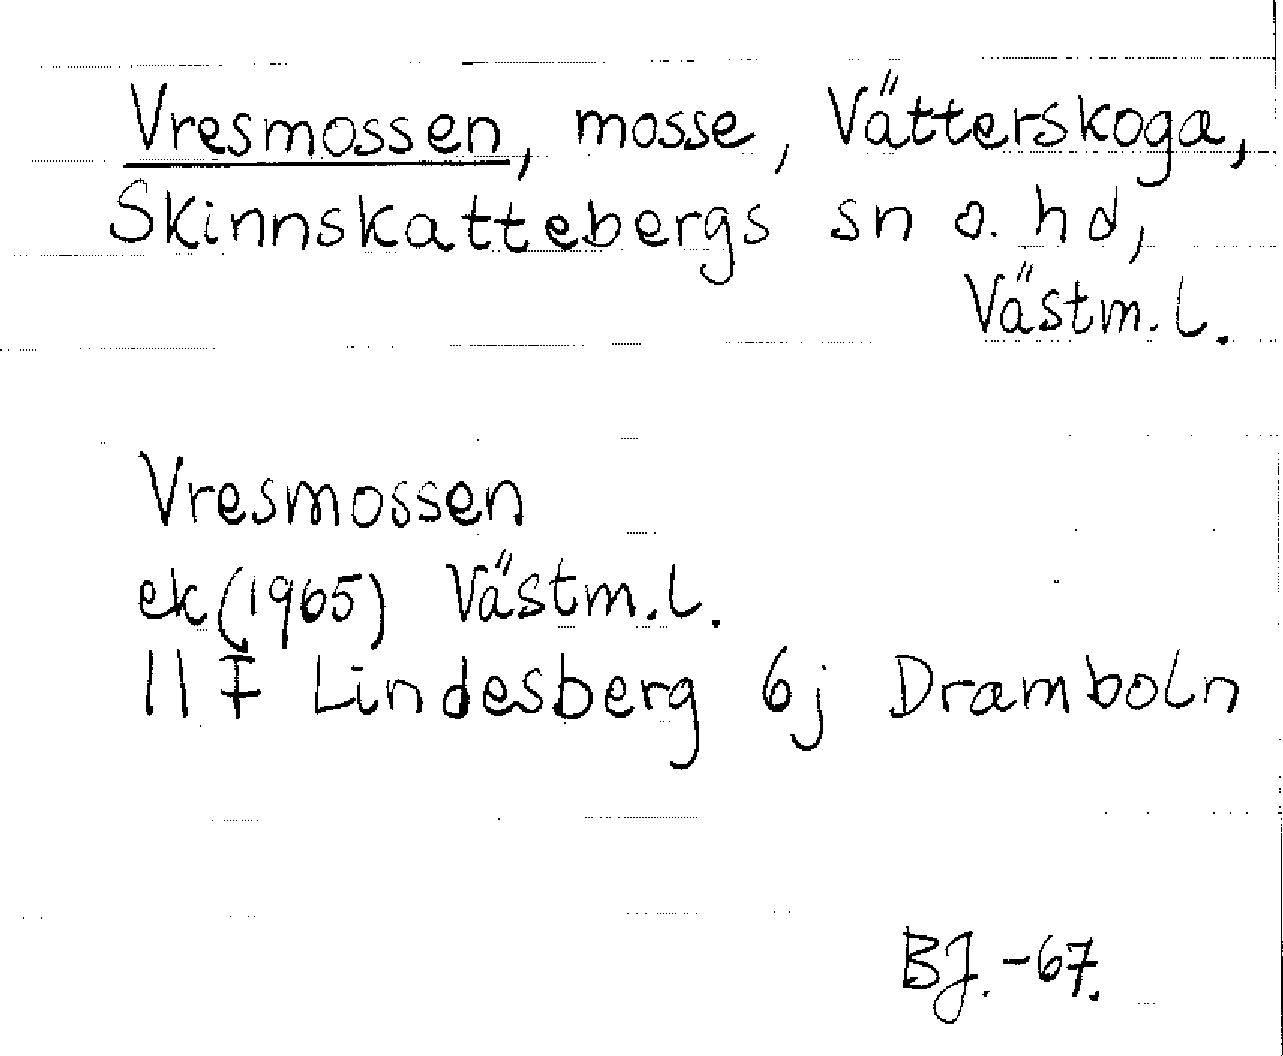 Vresmossen, mosse, Vätterskoga,
Skinnskattebergs sn o. hd,
Västm. l.
Vresmossen
ek (1965) Västm. l.
11 F Lindesberg 6j Dramboln
BJ. -67.